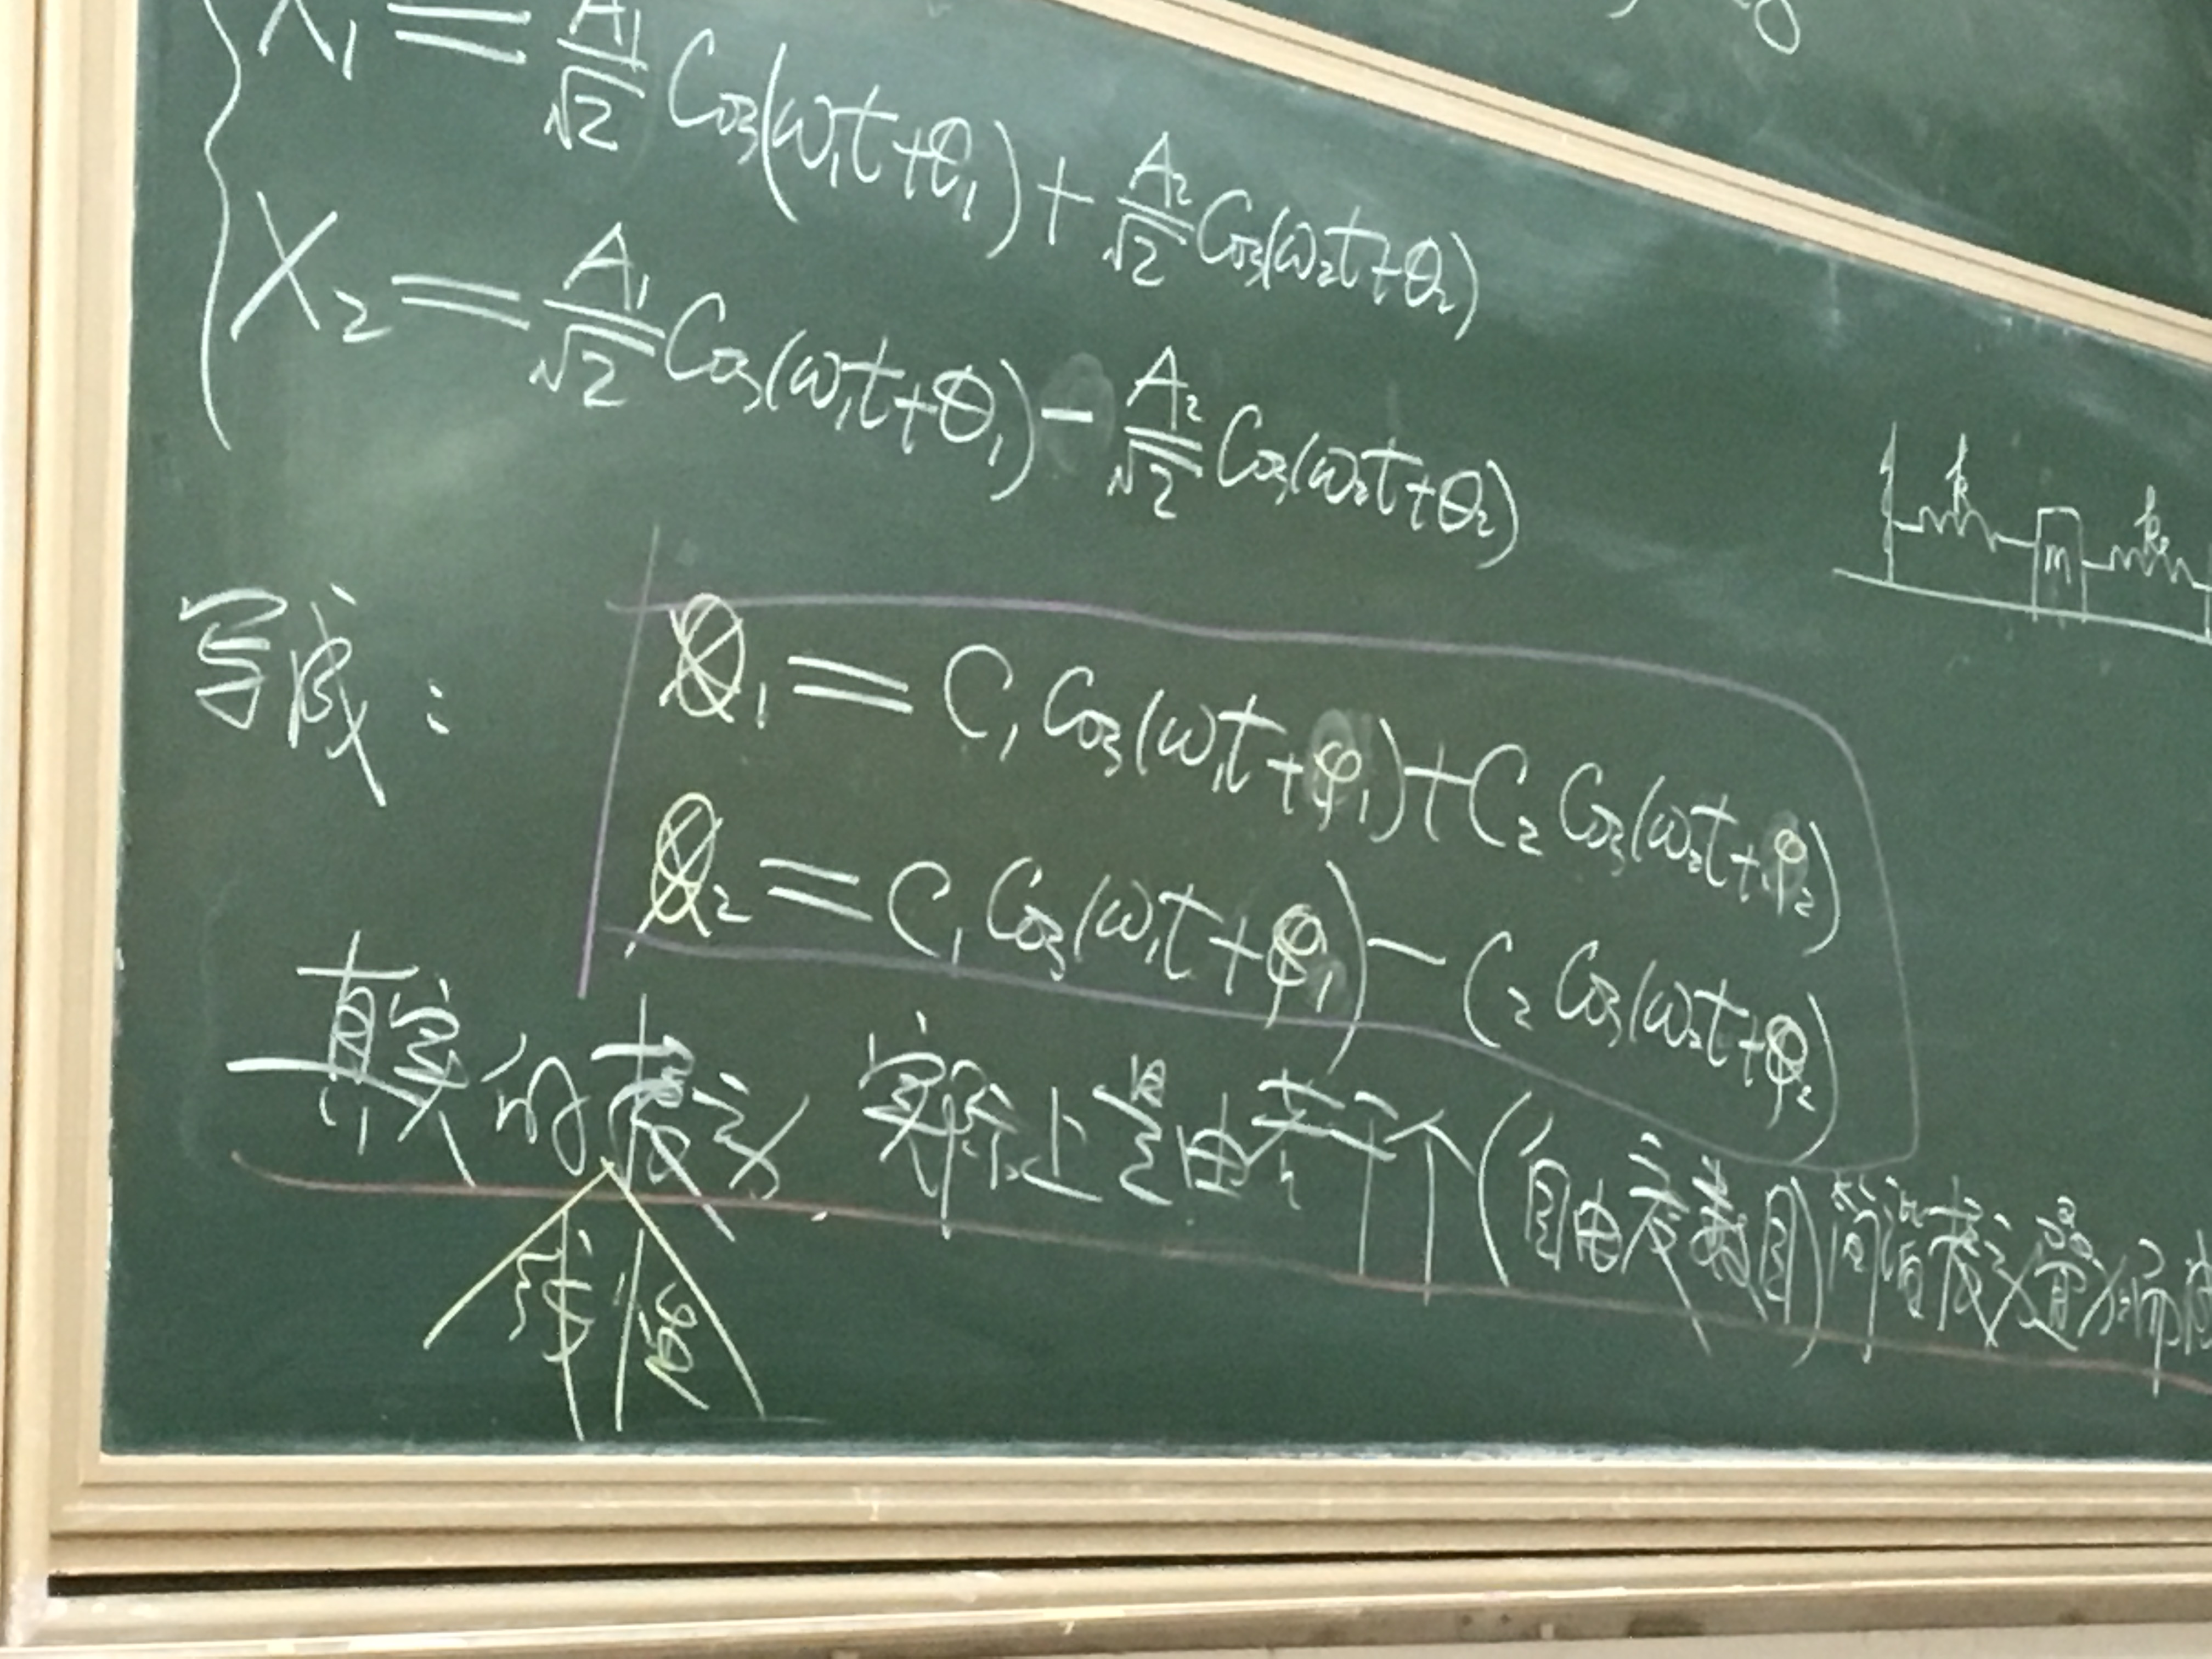 X₁ = A₁/√2 Cos(ω₁t+θ₁) + A₂/√2 Cos(ω₂t+θ₂)
X₂ = A₁/√2 Cos(ω₁t+θ₁) - A₂/√2 Cos(ω₂t+θ₂)
k
k₀
m
写成:
X₁ = C₁ Cos(ω₁t+φ₁) + C₂ Cos(ω₂t+φ₂)
X₂ = C₁ Cos(ω₁t+φ₁) - C₂ Cos(ω₂t+φ₂)
真实的振动 实际上是由若干个(自由度数目)简谐振动叠加而成